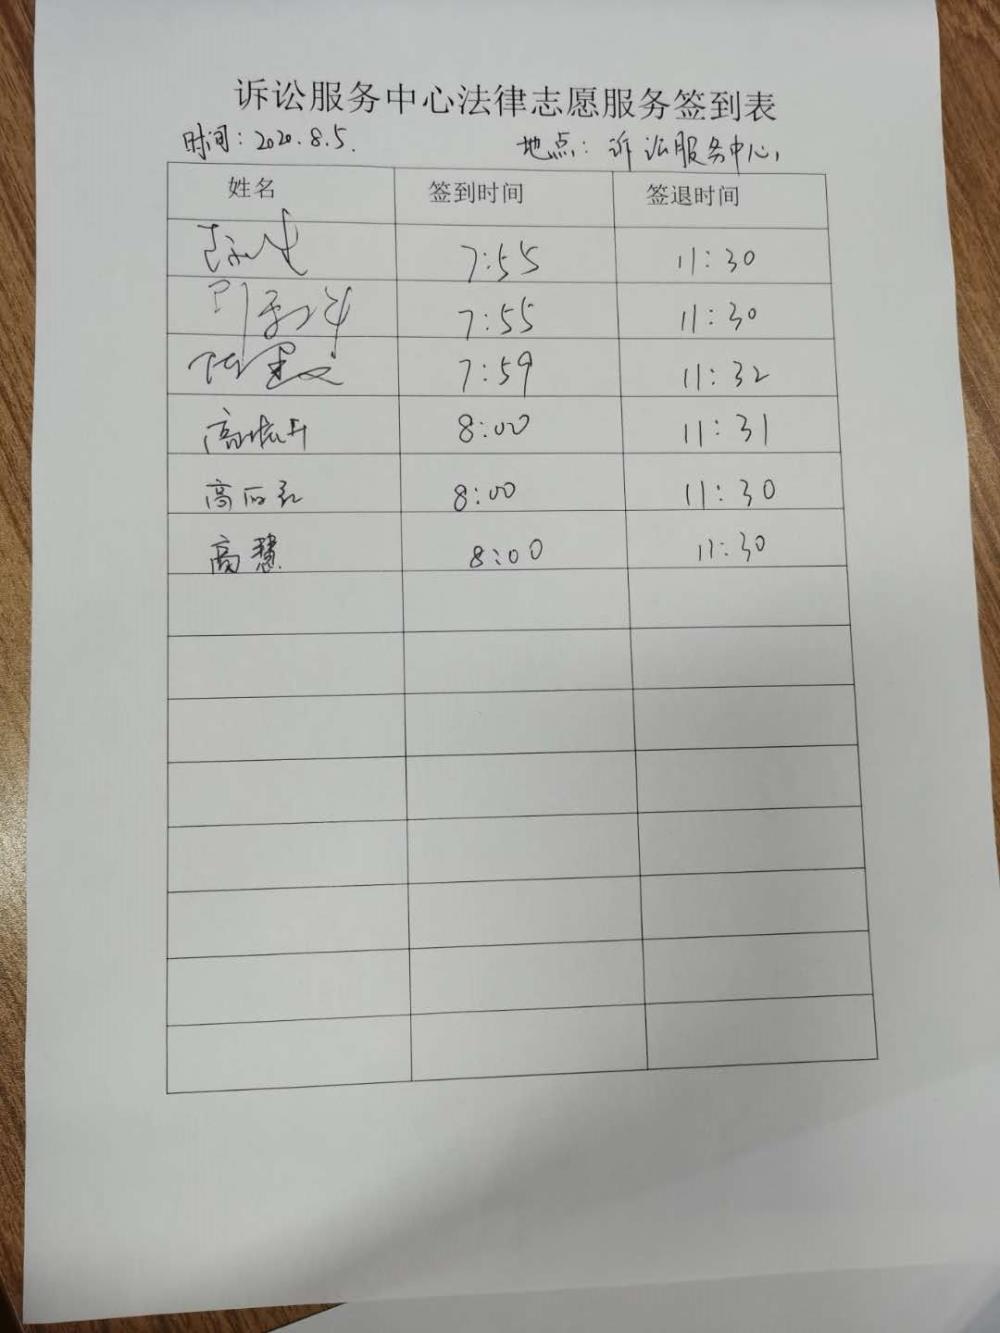 诉讼服务中心法律志愿服务签到表
时间：2020.8.5. 地点：诉讼服务中心，
姓名 签到时间 签退时间
7:55 11:30
7:55 11:30
7:59 11:32
高 8:00 11:31
高 8:00 11:30
高慧 8:00 11:30